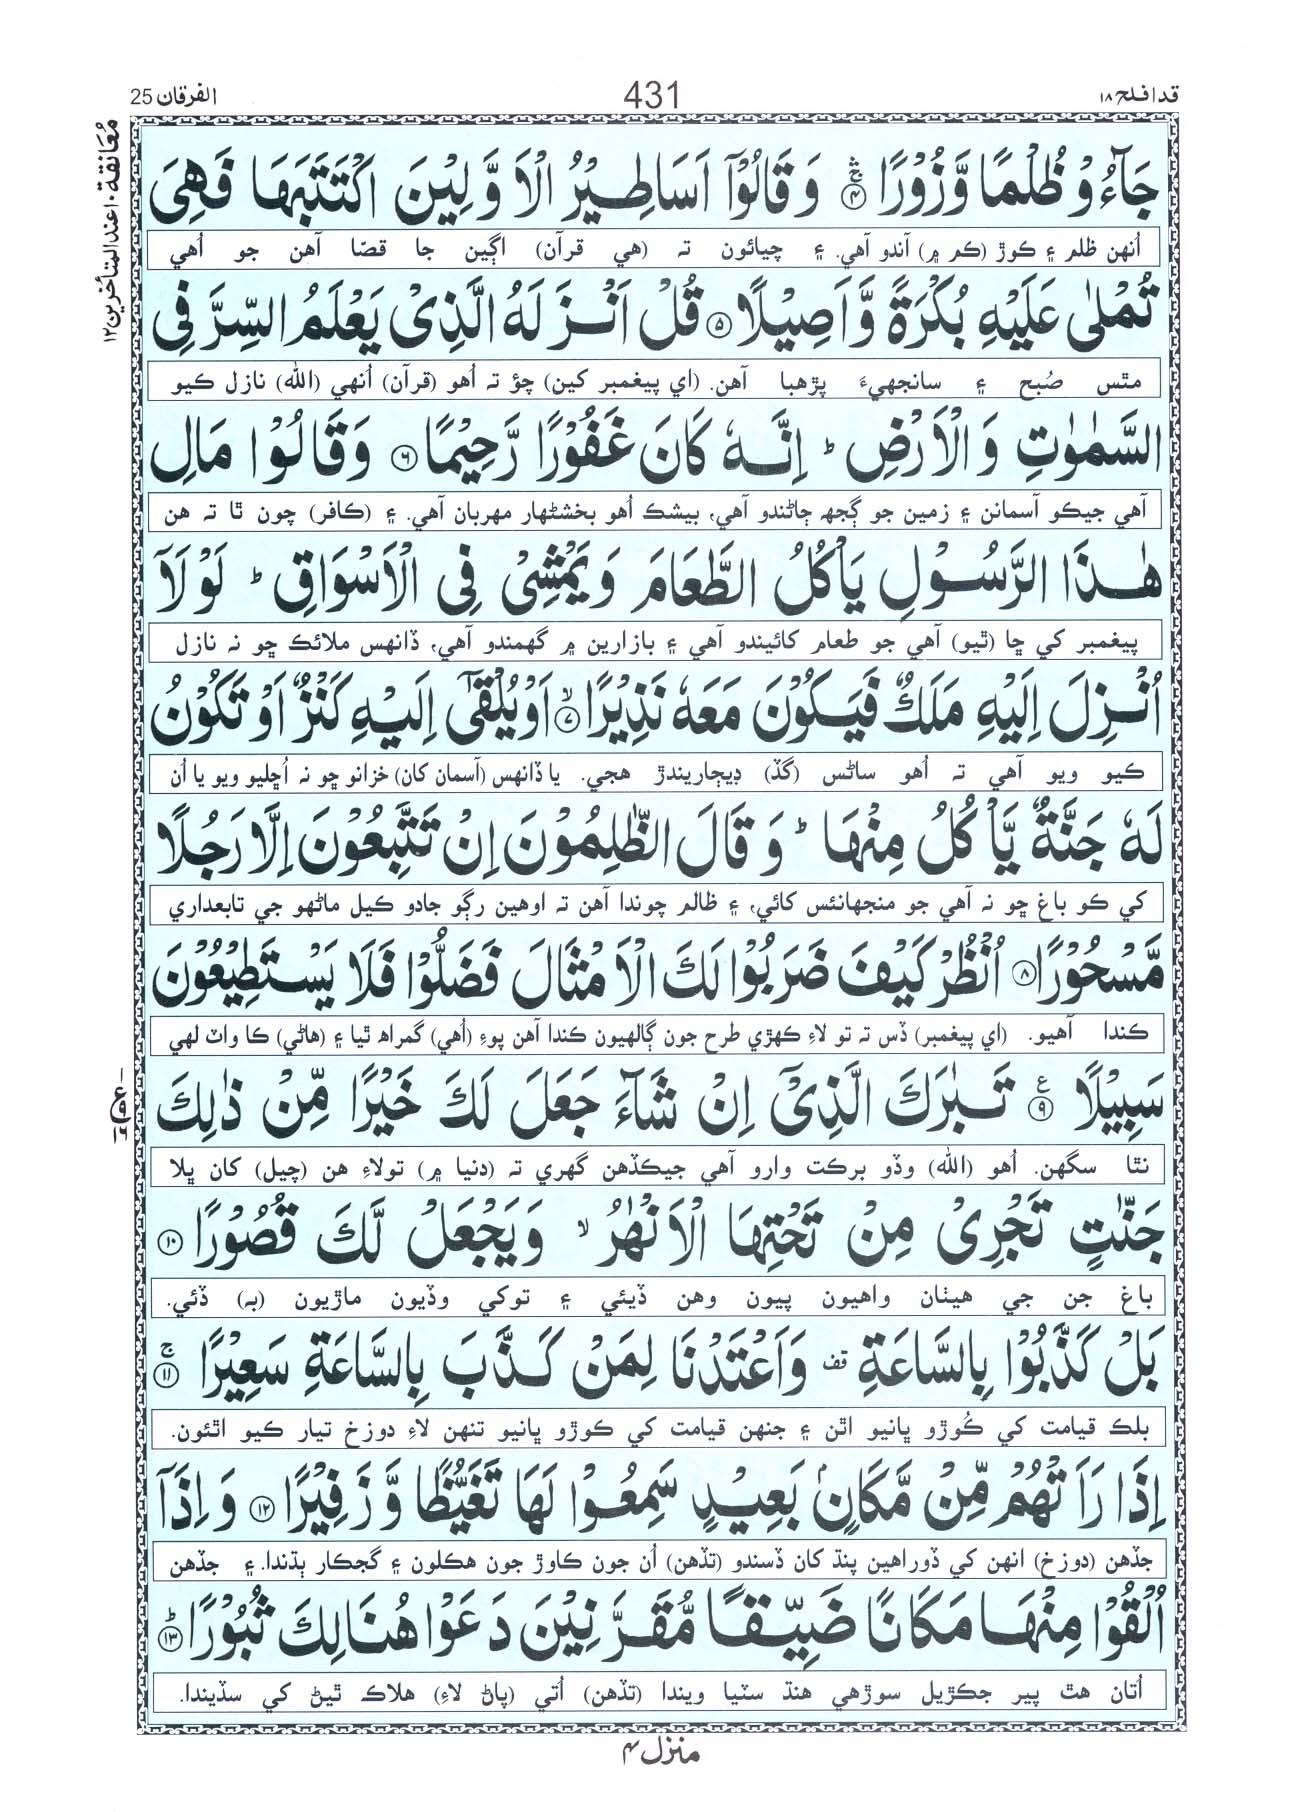 قد افلح ١٨
431
الفرقان 25
معانقة ١٠ عند المتأخرين ١٢
جَآءُوۡ ظُلۡمًا وَّزُوۡرًا ۚۛ ﴿۴﴾ وَقَالُوۡۤا اَسَاطِیۡرُ الۡاَوَّلِیۡنَ اکۡتَتَبَہَا فَہِیَ
اُنهن ظلم ۽ ڪوڙ (ڪم ۾) آندو آهي. ۽ چيائون ته (هي قرآن) اڳين جا قصّا آهن جو اُهي
تُمۡلٰی عَلَیۡہِ بُکۡرَۃً وَّاَصِیۡلًا ﴿۵﴾ قُلۡ اَنۡزَلَہُ الَّذِیۡ یَعۡلَمُ السِّرَّ فِی
مٿس صُبح ۽ سانجهيءَ پڙهبا آهن. (اي پيغمبر کين) چؤ ته اُهو (قرآن) اُنهي (الله) نازل ڪيو
السَّمٰوٰتِ وَالۡاَرۡضِ ؕ اِنَّہٗ کَانَ غَفُوۡرًا رَّحِیۡمًا ﴿۶﴾ وَقَالُوۡا مَالِ
آهي جيڪو آسمانن ۽ زمين جو ڳجهہ ڄاڻندو آهي، بيشڪ اُهو بخشڻهار مهربان آهي. ۽ (ڪافر) چون ٿا ته هن
ہٰذَا الرَّسُوۡلِ یَاۡکُلُ الطَّعَامَ وَیَمۡشِیۡ فِی الۡاَسۡوَاقِ ؕ لَوۡلَاۤ
پيغمبر کي ڇا (ٿيو) آهي جو طعام کائيندو آهي ۽ بازارين ۾ گهمندو آهي، ڏانهس ملائڪ ڇو نه نازل
اُنۡزِلَ اِلَیۡہِ مَلَکٌ فَیَکُوۡنَ مَعَہٗ نَذِیۡرًا ۙ﴿۷﴾ اَوۡ یُلۡقٰۤی اِلَیۡہِ کَنۡزٌ اَوۡ تَکُوۡنُ
ڪيو ويو آهي ته اُهو ساڻس (گڏ) ڊيڄاريندڙ هجي. يا ڏانهس (آسمان کان) خزانو ڇو نه اُڇليو ويو يا اُن
لَہٗ جَنَّۃٌ یَّاۡکُلُ مِنۡہَا ؕ وَقَالَ الظّٰلِمُوۡنَ اِنۡ تَتَّبِعُوۡنَ اِلَّا رَجُلًا
کي ڪو باغ ڇو نه آهي جو منجهانئس کائي، ۽ ظالم چوندا آهن ته اوهين رڳو جادو ڪيل ماڻهو جي تابعداري
مَّسۡحُوۡرًا ﴿۸﴾ اُنۡظُرۡ کَیۡفَ ضَرَبُوۡا لَکَ الۡاَمۡثَالَ فَضَلُّوۡا فَلَا یَسۡتَطِیۡعُوۡنَ
ڪندا آهيو. (اي پيغمبر) ڏس ته تو لاءِ ڪهڙي طرح جون ڳالهيون ڪندا آهن پوءِ (اُهي) گمراه ٿيا ۽ (هاڻي) ڪا واٽ لهي
سَبِیۡلًا ﴿۹﴾ ع تَبٰرَکَ الَّذِیۡۤ اِنۡ شَآءَ جَعَلَ لَکَ خَیۡرًا مِّنۡ ذٰلِکَ
ع
١٦
نٿا سگهن. اُهو (الله) وڏو برڪت وارو آهي جيڪڏهن گهري ته (دنيا ۾) تولاءِ هن (چيل) کان ڀلا
جَنّٰتٍ تَجۡرِیۡ مِنۡ تَحۡتِہَا الۡاَنۡہٰرُ ۙ وَیَجۡعَلۡ لَّکَ قُصُوۡرًا ﴿۱۰﴾
باغ جن جي هيٺان واهيون پيون وهن ڏيئي ۽ توکي وڏيون ماڙيون (به) ڏئي.
بَلۡ کَذَّبُوۡا بِالسَّاعَۃِ ۟ قف وَاَعۡتَدۡنَا لِمَنۡ کَذَّبَ بِالسَّاعَۃِ سَعِیۡرًا ۚ﴿۱۱﴾
بلڪ قيامت کي ڪُوڙو ڀانيو اٿن ۽ جنهن قيامت کي ڪوڙو ڀانيو تنهن لاءِ دوزخ تيار ڪيو اٿئون.
اِذَا رَاَتۡہُمۡ مِّنۡ مَّکَانٍۭ بَعِیۡدٍ سَمِعُوۡا لَہَا تَغَیُّظًا وَّزَفِیۡرًا ﴿۱۲﴾ وَاِذَاۤ
جڏهن (دوزخ) انهن کي ڏوراهين پنڌ کان ڏسندو (تڏهن) اُن جون ڪاوڙ جون هڪلون ۽ گجڪار ٻڌندا. ۽ جڏهن
اُلۡقُوۡا مِنۡہَا مَکَانًا ضَیِّقًا مُّقَرَّنِیۡنَ دَعَوۡا ہُنَالِکَ ثُبُوۡرًا ﴿ؕ۱۳﴾
اُتان هٿ پير جڪڙيل سوڙهي هنڌ سٽيا ويندا (تڏهن) اُتي (پاڻ لاءِ) هلاڪ ٿيڻ کي سڏيندا.
منزل ۴